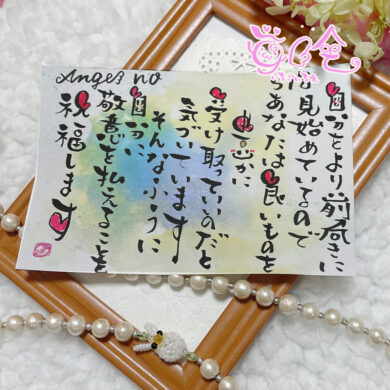 Angel no
自分をより前向きに
見始めているので
あなたは良いものを
豊かに
受け取っているのだと
気づいています
そんなふうに
自分に
敬意を払えることを
祝福します